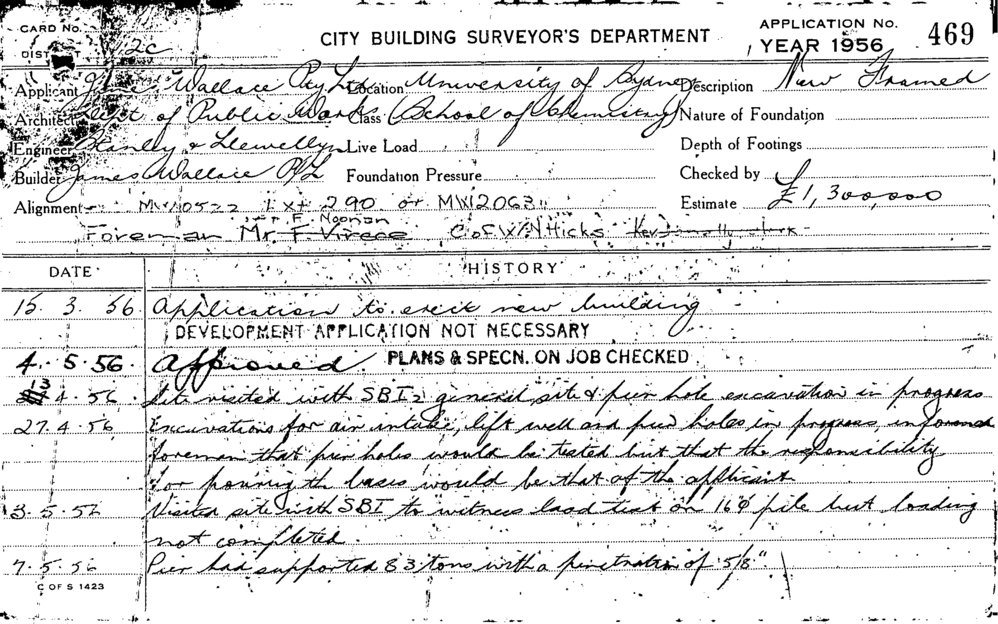 CARD No.
CITY BUILDING SURVEYOR'S DEPARTMENT
APPLICATION No. 469
YEAR 1956
2c
Applicant Wallace Pty Ltd Location University of Sydney Description New Framed
Architect Dept of Public Works Class (School of Chemistry) Nature of Foundation
Engineer & Llewellyn Live Load Depth of Footings
Builder James Wallace P/L Foundation Pressure Checked by
Alignment MW10522 1 x + 290 or MW12063 Estimate £1,300,000
F. Noonan
Foreman Mr. F C of W N Hicks
DATE HISTORY
15. 3. 56 Application to erect new building
DEVELOPMENT APPLICATION NOT NECESSARY
4. 5. 56. Approved. PLANS & SPECN. ON JOB CHECKED
13 4. 56. Site visited with SBI, general site & pier hole excavation in progress
27. 4. 56 Excavations for air intake, lift well and pier holes in progress, informed
foreman that pier holes would be tested but that the responsibility
for pouring the bases would be that of the applicant
3. 5. 56 Visited site with SBI to witness load test on 16φ pile but loading
not completed.
7. 5. 56 Pier had supported 83 tons with a penetration of 5/8"
C OF S 1423